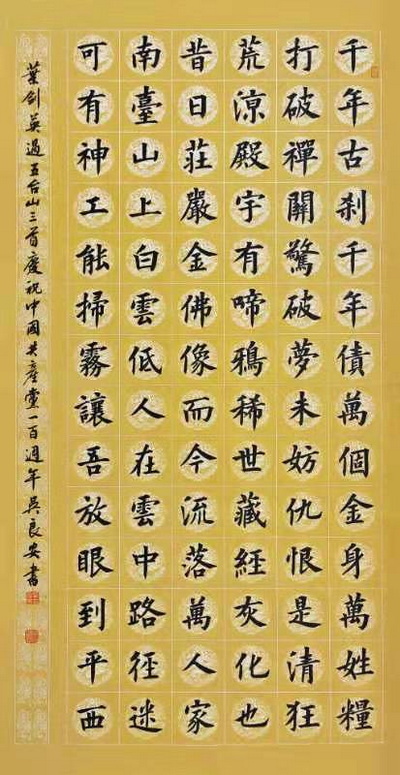 千年古刹千年債萬個金身萬姓糧
打破禪關驚破夢未妨仇恨是清狂
荒涼殿宇有啼鴉稀世藏經灰化也
昔日莊嚴金佛像而今流落萬人家
南臺山上白雲低人在雲中路徑迷
可有神工能掃霧讓吾放眼到平西
葉剑英過五台山三首慶祝中國共產黨一百週年吳良安書